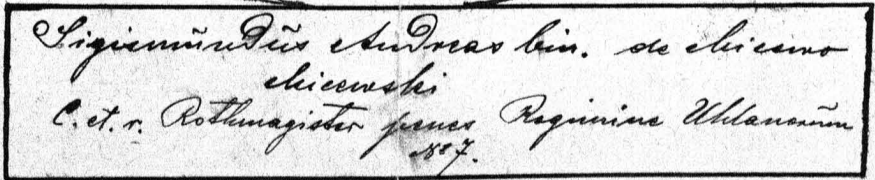 Sigismundus Andreas bin. de Micewo
Micewski
C. et. r. Rothmagister penes Regimine Uhlanorum
No 7.